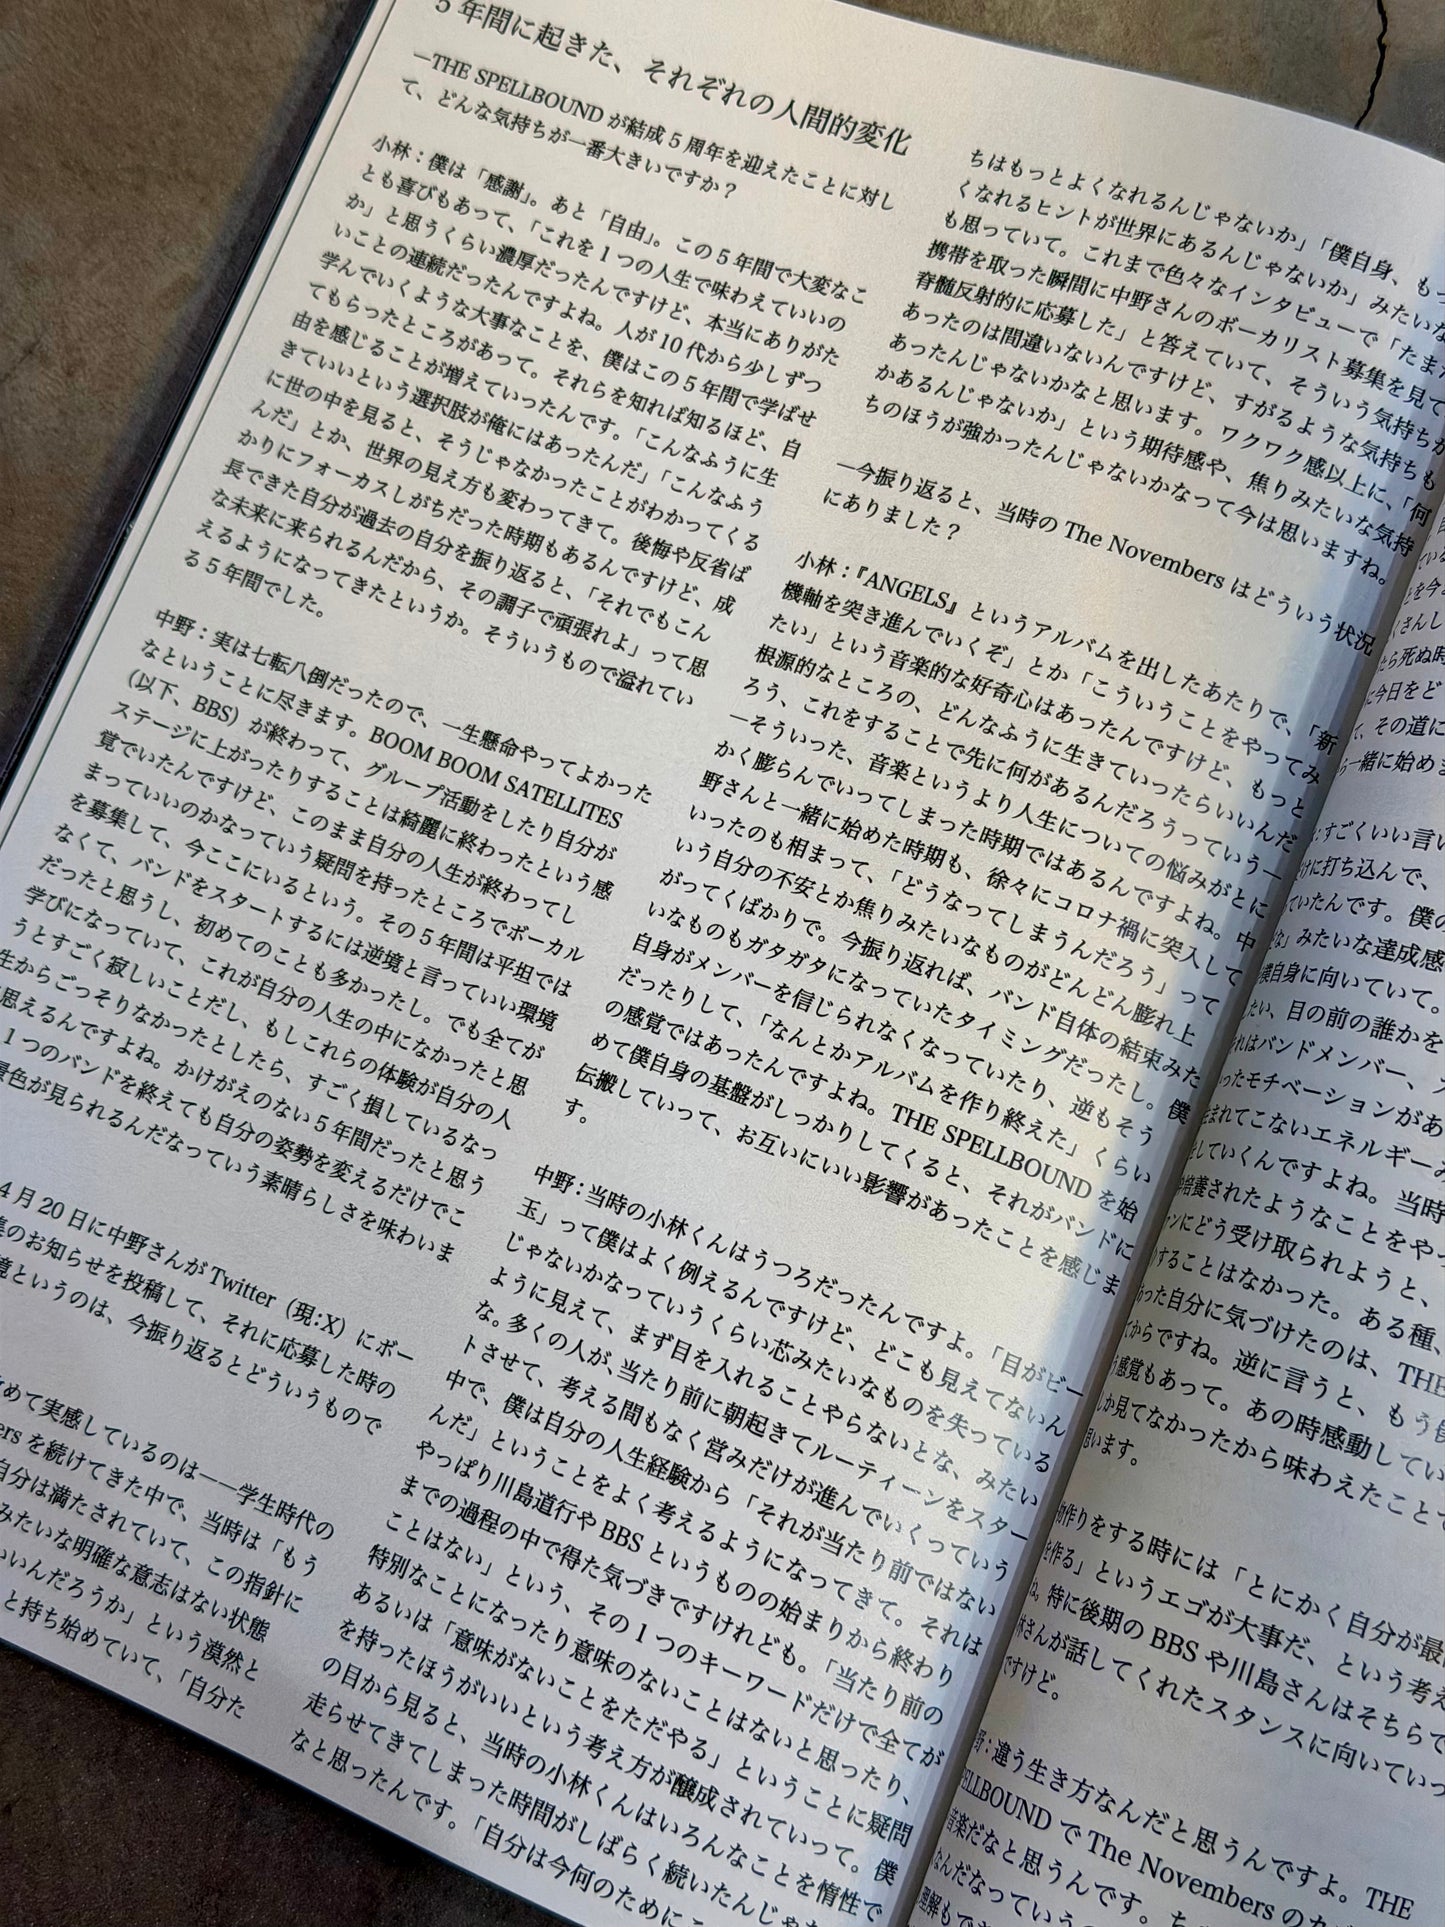 5年間に起きた、それぞれの人間的変化
—THE SPELLBOUND が結成5周年を迎えたことに対し
て、どんな気持ちが一番大きいですか?
小林:僕は「感謝」。あと「自由」。この5年間で大変なこ
とも喜びもあって、「これを1つの人生で味わえていいの
か」と思うくらい濃厚だったんですけど、本当にありがた
いことの連続だったんですよね。人が10代から少しずつ
学んでいくような大事なことを、僕はこの5年間で学ばせ
てもらったところがあって。それらを知れば知るほど、自
由を感じることが増えていったんです。「こんなふうに生
きていいという選択肢が俺にはあったんだ」「こんなふう
に世の中を見ると、そうじゃなかったことがわかってくる
んだ」とか、世界の見え方も変わってきて。後悔や反省ば
かりにフォーカスしがちだった時期もあるんですけど、成
長できた自分が過去の自分を振り返ると、「それでもこん
な未来に来られるんだから、その調子で頑張れよ」って思
えるようになってきたというか。そういうもので溢れてい
る5年間でした。
中野:実は七転八倒だったので、一生懸命やってよかった
なということに尽きます。BOOM BOOM SATELLITES
(以下、BBS)が終わって、グループ活動をしたり自分が
ステージに上がったりすることは綺麗に終わったという感
覚でいたんですけど、このまま自分の人生が終わってし
まっていいのかなっていう疑問を持ったところでボーカル
を募集して、今ここにいるという。その5年間は平坦では
なくて、バンドをスタートするには逆境と言っていい環境
だったと思うし、初めてのことも多かったし。でも全てが
学びになっていて、これが自分の人生の中になかったと思
うとすごく寂しいことだし、もしこれらの体験が自分の人
生からごっそりなかったとしたら、すごく損しているなっ
思えるんですよね。かけがえのない5年間だったと思う
1つのバンドを終えても自分の姿勢を変えるだけでこ
景色が見られるんだなっていう素晴らしさを味わいま
4月20日に中野さんがTwitter(現:X)にボー
のお知らせを投稿して、それに応募した時の
というのは、今振り返るとどういうもので
めて実感しているのは——学生時代の
ersを続けてきた中で、当時は「もう
自分は満たされていて、この指針に
みたいな明確な意志はない状態
いいんだろうか」という漠然と
と持ち始めていて、「自分た
ちはもっとよくなれるんじゃないか」「僕自身、もっ
くなれるヒントが世界にあるんじゃないか」みたいな
も思っていて。これまで色々なインタビューで「たま
携帯を取った瞬間に中野さんのボーカリスト募集を見て
脊髄反射的に応募した」と答えていて、そういう気持ちが
あったのは間違いないんですけど、すがるような気持ちも
あったんじゃないかなと思います。ワクワク感以上に、「何
かあるんじゃないか」という期待感や、焦りみたいな気持
ちのほうが強かったんじゃないかなって今は思いますね。
—今振り返ると、当時の The Novembers はどういう状況
にありました?
小林:『ANGELS』というアルバムを出したあたりで、「新
機軸を突き進んでいくぞ」とか「こういうことをやってみ
たい」という音楽的な好奇心はあったんですけど、もっと
根源的なところの、どんなふうに生きていったらいいんだ
ろう、これをすることで先に何があるんだろうっていう—
—そういった、音楽というより人生についての悩みがとに
かく膨らんでいってしまった時期ではあるんですよね。中
野さんと一緒に始めた時期も、徐々にコロナ禍に突入して
いったのも相まって、「どうなってしまうんだろう」って
いう自分の不安とか焦りみたいなものがどんどん膨れ上
がってくばかりで。今振り返れば、バンド自体の結束みた
いなものもガタガタになっていたタイミングだったし。僕
自身がメンバーを信じられなくなっていたり、逆もそう
だったりして、「なんとかアルバムを作り終えた」くらい
の感覚ではあったんですよね。THE SPELLBOUND を始
めて僕自身の基盤がしっかりしてくると、それがバンドに
伝搬していって、お互いにいい影響があったことを感じま
す。
中野:当時の小林くんはうつろだったんですよ。「目がビー
玉」って僕はよく例えるんですけど、どこも見えてないん
じゃないかなっていうくらい芯みたいなものを失っている
ように見えて、まず目を入れることやらないとな、みたい
な。多くの人が、当たり前に朝起きてルーティーンをスター
トさせて、考える間もなく営みだけが進んでいくっていう
中で、僕は自分の人生経験から「それが当たり前ではない
んだ」ということをよく考えるようになってきて。それは
やっぱり川島道行や BBS というものの始まりから終わり
までの過程の中で得た気づきですけれども。「当たり前の
ことはない」という、その1つのキーワードだけで全てが
特別なことになったり意味のないことはないと思ったり、
あるいは「意味がないことをただやる」ということに疑問
を持ったほうがいいという考え方が醸成されていって。僕
の目から見ると、当時の小林くんはいろんなことを惰性で
走らせてきてしまった時間がしばらく続いたんじゃ
なと思ったんです。「自分は今何のために
くさんし
たら死ぬ時
に今日をど
て、その道に
一緒に始め
すごくいい言い
けに打ち込んで、
ていたんです。僕の
みたいな達成感
自身に向いていて。
たい、目の前の誰かを
れはバンドメンバー、
ったモチベーションがあ
生まれてこないエネルギー
をしていくんですよね。当時
培養されたようなことをやっ
にどう受け取られようと、
することはなかった。ある種、
った自分に気づけたのは、THE
てからですね。逆に言うと、もう
感覚もあって。あの時感動してい
しか見てなかったから味わえたこと
思います。
作りをする時には「とにかく自分が最
を作る」というエゴが大事だ、という考え
ね。特に後期の BBS や川島さんはそちらで
林さんが話してくれたスタンスに向いていっ
ですけど。
野:違う生き方なんだと思うんですよ。THE
SPELLBOUND で The Novembers の
音楽だなと思うんです。
なんだなっていう
理解もで